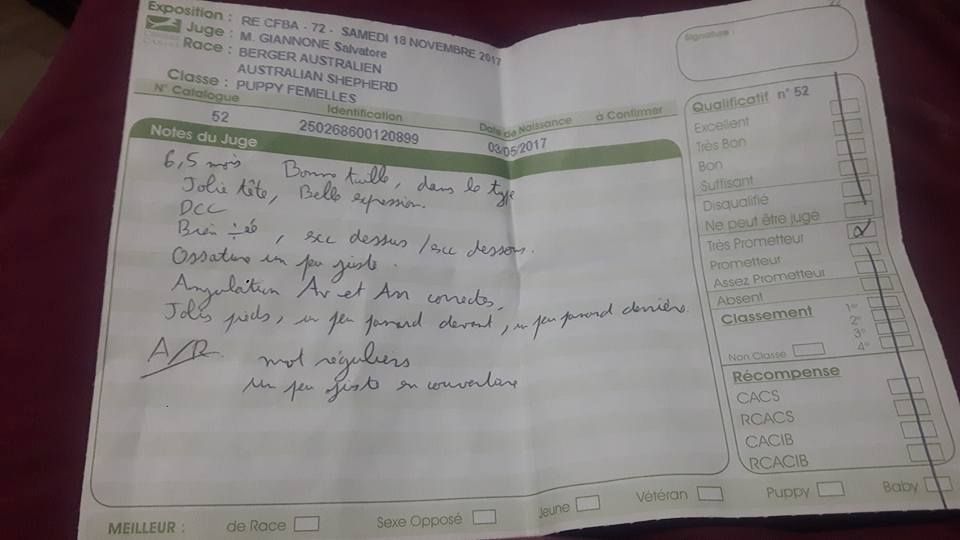 Exposition : RE CFBA - 72 - SAMEDI 18 NOVEMBRE 2017
Juge : M. GIANNONE Salvatore
Race : BERGER AUSTRALIEN
AUSTRALIAN SHEPHERD
Classe : PUPPY FEMELLES
N° Catalogue Identification Date de Naissance à Confirmer
52 250268600120899 03/05/2017
Notes du Juge
6,5 mois Bonne taille, dans le type
Jolie tête, Belle expression.
DCC
Bien , exc dessus / exc dessous.
Ossature un peu juste.
Angulation Av et Arr correctes,
Jolis pieds, un peu panard devant, un peu panard derrière.
A/R mvt réguliers
un peu juste en couverture
Signature :
Qualificatif n° 52
Excellent
Très Bon
Bon
Suffisant
Disqualifié
Ne peut être jugé
Très Prometteur
Prometteur
Assez Prometteur
Absent
Classement 1er
2e
3e
4e
Non Classé
Récompense
CACS
RCACS
CACIB
RCACIB
MEILLEUR : de Race Sexe Opposé Jeune Vétéran Puppy Baby